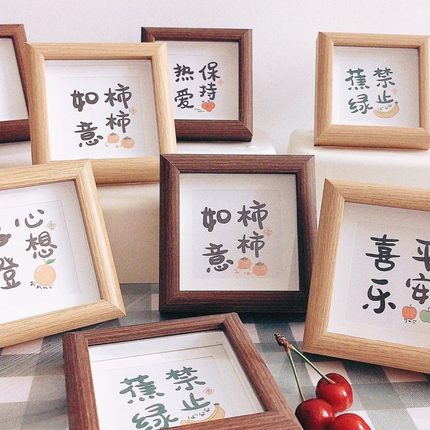 柿柿
如意
保持
热爱
禁止
蕉绿
心想
柿柿
如意
平安
喜乐
禁止
蕉绿